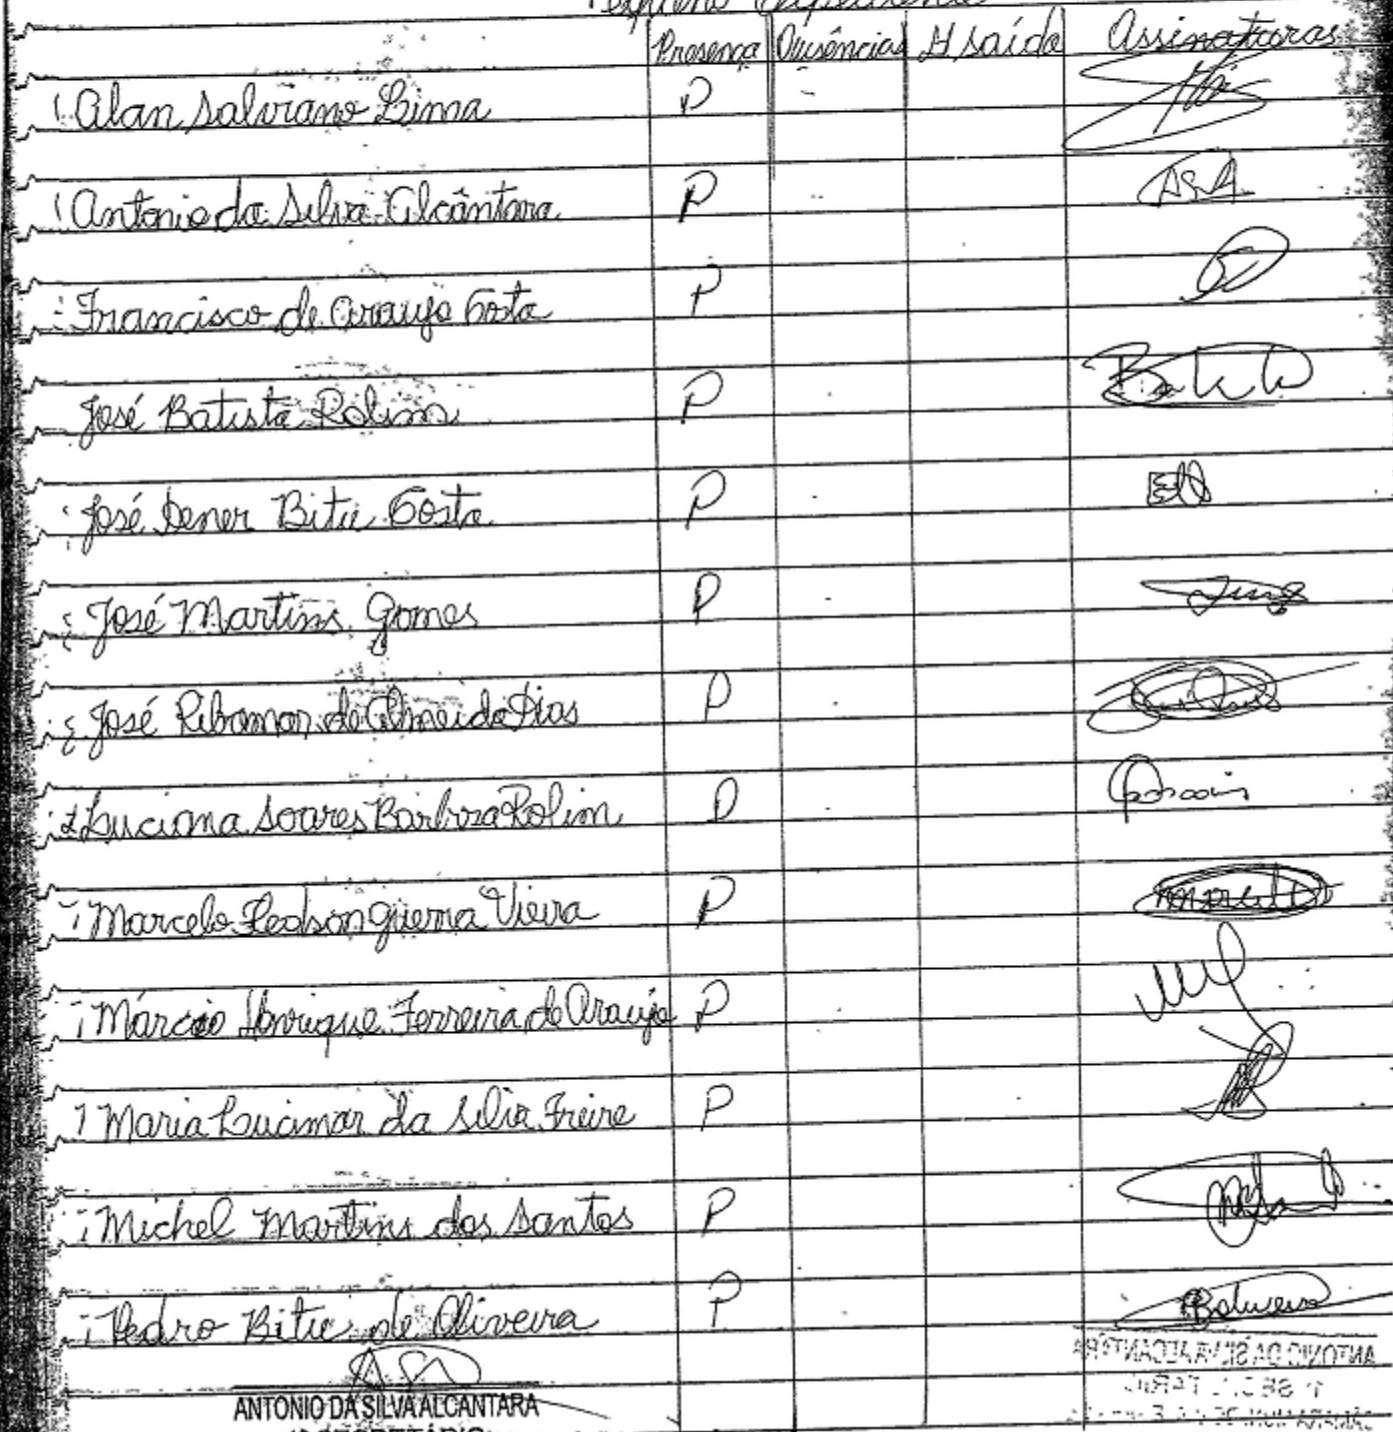 Pequeno Expediente
Presença Ausências H saída Assinaturas
Alan Salviano Lima P
Antonio da Silva Alcântara P ASA
Francisco de Araujo Costa P
José Batista Rolim P
José Dener Bitu Costa P
José Martins Gomes P
José Ribamar de Almeida Dias P
Luciana Soares Barbosa Rolim P
Marcelo Ledson Guerra Vieira P
Márcio Henrique Ferreira de Araujo P
Maria Lucimar da Silva Freire P
Michel Martins dos Santos P
Pedro Bitu de Oliveira P
ASA
ANTONIO DA SILVA ALCANTARA